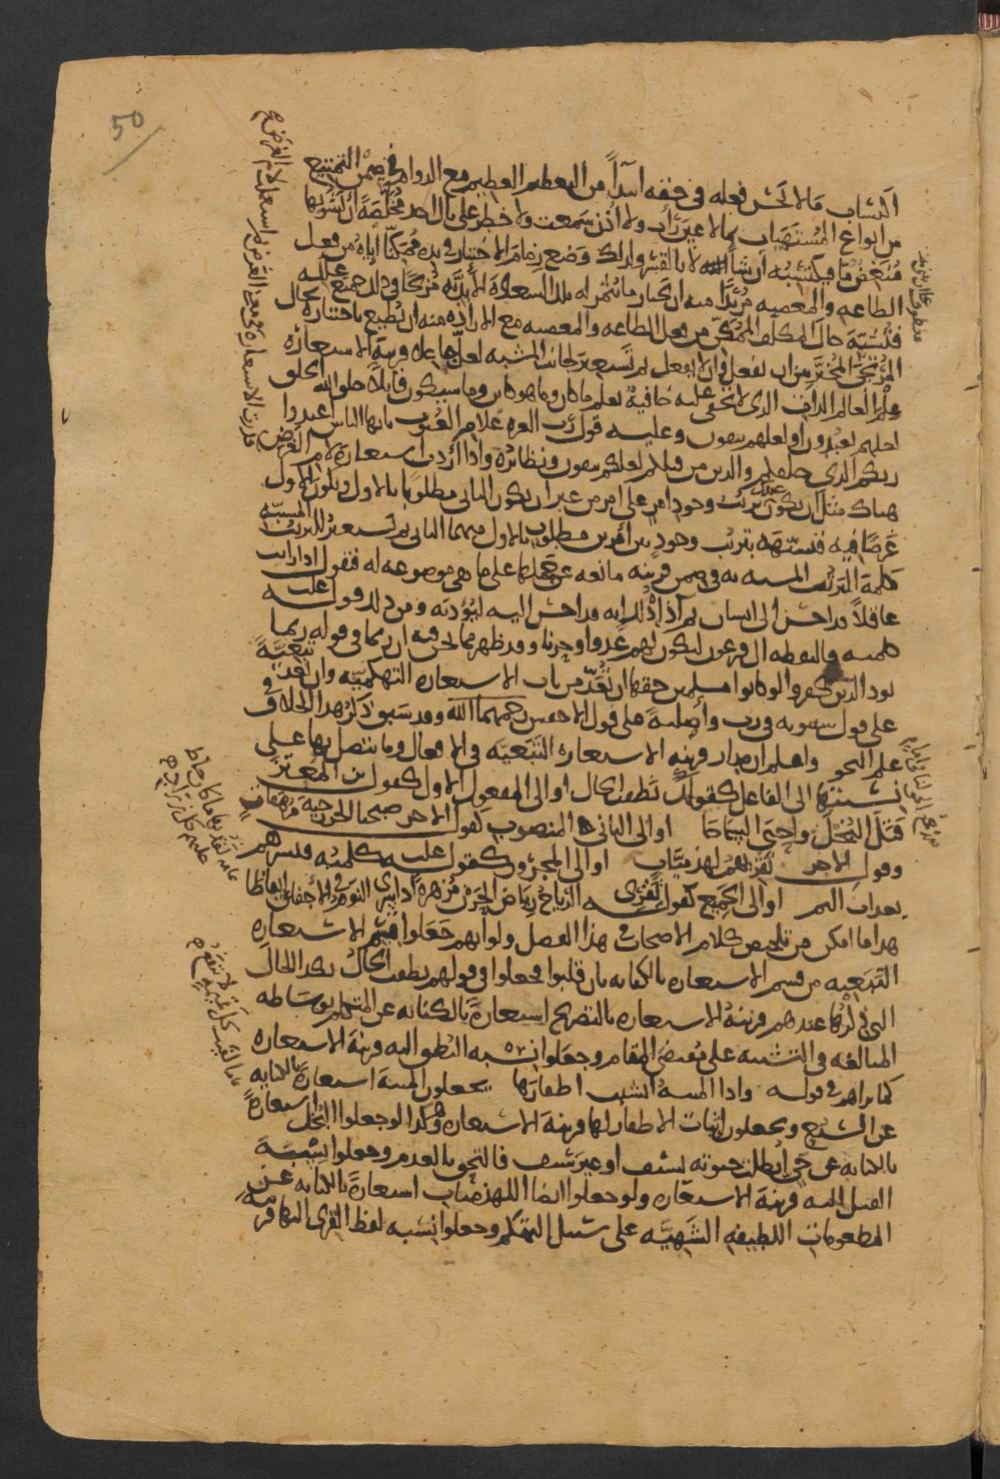 50
اكتساب ما لا يحسن فعله في حقه ابتدأً من التعظيم العظيم مع الدوام في ضمن التمتيع
من انواع المشتهيات بما لا عين رأت ولا اذن سمعت ولا خطر على بال احد مخلصة ان يشوبها
منغص ما فيكتسبه ان شاء لا بالقسر ولذلك وضع زمام الاختيار في يده ممكنا اياه من فعل
الطاعه والمعصيه مريدا منه ان يختار ما يثمر له تلك السعادة الابديه مزيحا في ذلك جميع علله
فتشبه حال المكلف الممكن من فعل الطاعه والمعصيه مع الاراده منه ان يطيع باختياره بحال
المرتجى المخير بين ان يفعل وان لا يفعل ثم تستعير لجانب المشبه لعل جاعلا قرينة الاستعارة
علم العالم الذات الذي لا تخفى عليه خافية يعلم ما كان وما هو كائن وما سيكون قائلا خلق الله الخلق
لعلهم يعبدون او لعلهم يتقون وعليه قول رب العزه علام الغيوب يا ايها الناس اعبدوا
ربكم الذي خلقكم والذين من قبلكم لعلكم تتقون ونظائره واذا اردت استعارة لام الغرض
هناك مثل ان يكون عندك ترتب وجود امر على امر من غير ان يكون الثاني مطلوبا بالاول ويكون الاول
غرضا فيه فتشبهه بترتب وجود بين امرين مطلوب بالاول منهما الثاني ثم تستعير للترتب المشبه
كلمة الترتب المشبه به في ضمن قرينه مانعه عن حملها على ما هي موضوعه له فتقول اذا رايت
عاقلا قد احسن الى انسان ثم آذاه ذلك انه قد احسن اليه ليؤذيه ومن ذلك قوله علت
كلمته فالتقطه ال فرعون ليكون لهم عدوا وحزنا وقد ظهر مما نحن فيه ان ربما في قوله ربما
يود الذين كفروا لو كانوا مسلمين حقها ان تعد من باب الاستعاره التهكميه وان تعد تبعيةً
على قول سيبويه في رب واصليةً على قول الاخفش رحمهما الله وقد سبق ذكر هذا الخلاف في
علم النحو واعلم ان مدار قرينه الاستعاره التبعيه في الافعال وما يتصل بها على
نسبتها الى الفاعل كقولك نطقت الحال او الى المفعول الاول كقول ابن المعتز
قتل البخل واحيى السماحا او الى الثاني المنصوب كقول الاخر صبحنا الخزرجيه مرهفات
وقول الاخر نقريهم لهذميات او الى المجرور كقوله علت كلمته فبشرهم
بعذاب اليم او الى الجميع كقوله تقري الرياح رياض الحزن مزهرة اذا سرى النوم في الاجفان ايقاظا
هذا ما امكن من تلخيص كلام الاصحاب في هذا الفصل ولو انهم جعلوا قسم الاستعاره
التبعيه من قسم الاستعاره بالكنايه بان قلبوا فجعلوا في قولهم نطقت الحال بكذا الحال
التي ذكرها عندهم قرينة الاستعاره بالتصريح استعارةً بالكنايه عن المتكلم بوساطه
المبالغه في التشبيه على مقتضى المقام وجعلوا نسبه النطق اليه قرينة الاستعاره
كما تراهم في قوله واذا المنية انشبت اظفارها يجعلون المنية استعارة بالكنايه
عن السبع ويجعلون اثبات الاظفار لها قرينة الاستعاره وهكذا لو جعلوا البخل استعارةً
بالكنايه عن حي ابطلت حيوته بسيف او غير سيف فالتحق بالعدم وجعلوا نسبة
القتل اليه قرينة الاستعاره ولو جعلوا ايضا اللهذميات استعارةً بالكنايه عن
المطعومات اللطيفه الشهيّه على سبيل التهكم وجعلوا نسبه لفظ القرى اليها قرينة